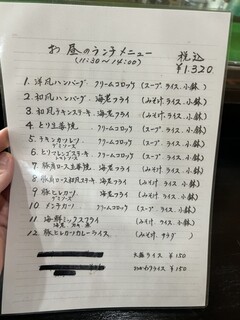 お昼のランチメニュー
(11:30～14:00)
税込
¥1.320
1. 洋風ハンバーグ クリームコロッケ (スープ. ライス. 小鉢)
2. 和風ハンバーグ 海老フライ (みそ汁. ライス. 小鉢)
3. 和風チキンステーキ. クリームコロッケ (みそ汁. ライス. 小鉢)
4. とり生姜焼 . クリームコロッケ (みそ汁. ライス. 小鉢)
5. チキンカツレツ 海老フライ (スープ. ライス. 小鉢)
6. クリームコロッケ (スープ. ライス. 小鉢)
7. 豚肩ロース生姜焼 海老フライ (みそ汁. ライス. 小鉢)
8. 豚肩ロース和風ステーキ 海老フライ (みそ汁. ライス. 小鉢)
9 豚ヒレカツ 海老フライ (みそ汁. ライス. 小鉢)
10 メンチカツ クリームコロッケ (スープ ライス. 小鉢)
11 海鮮ミックスフライ (みそ汁 ライス. 小鉢)
12 豚ヒレカツカレーライス (みそ汁. サラダ)
大盛ライス ¥150
¥150